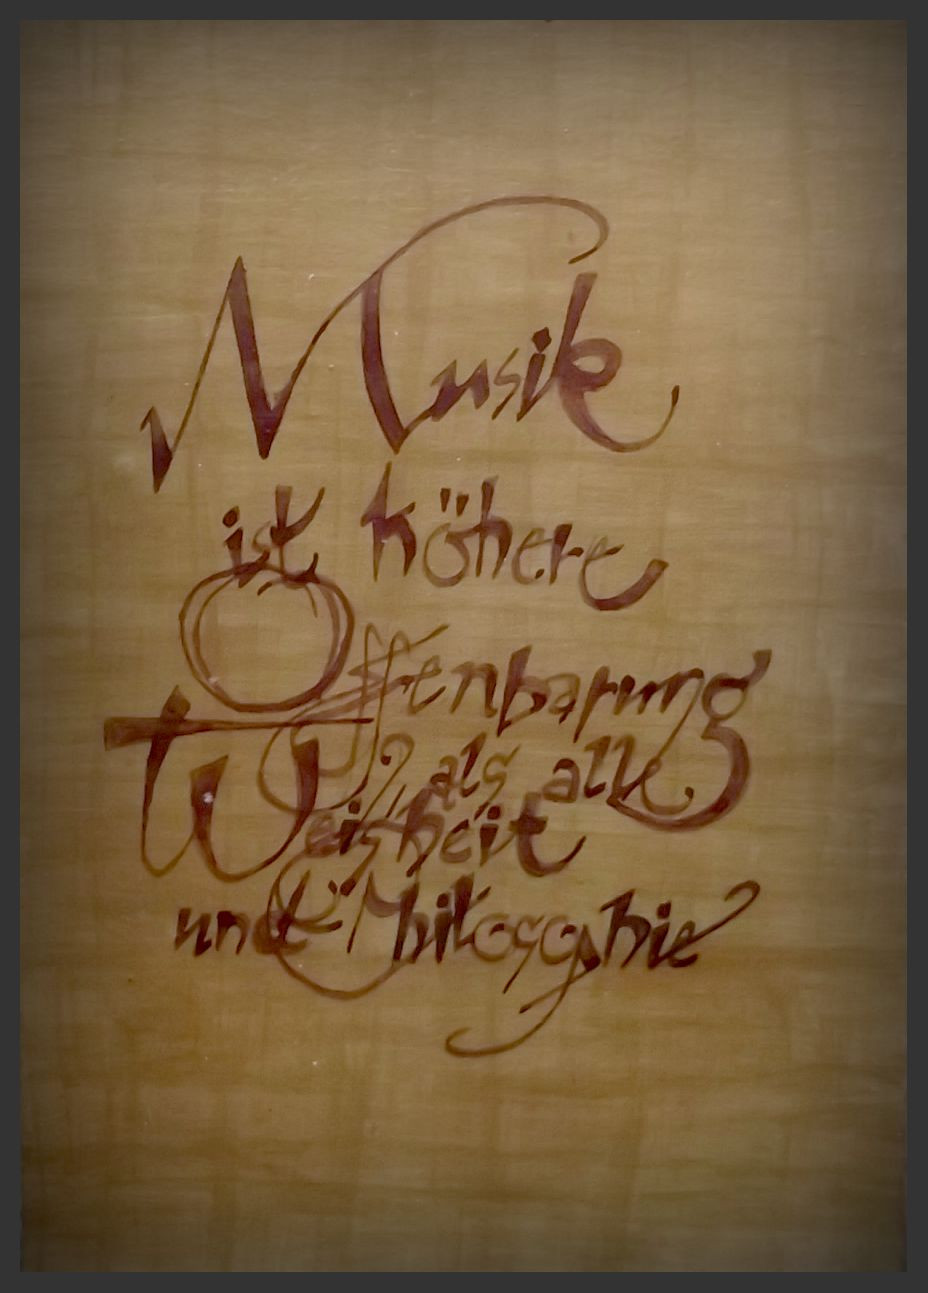 Musik
ist höhere
Offenbarung
als alle
Weisheit
und Philosophie